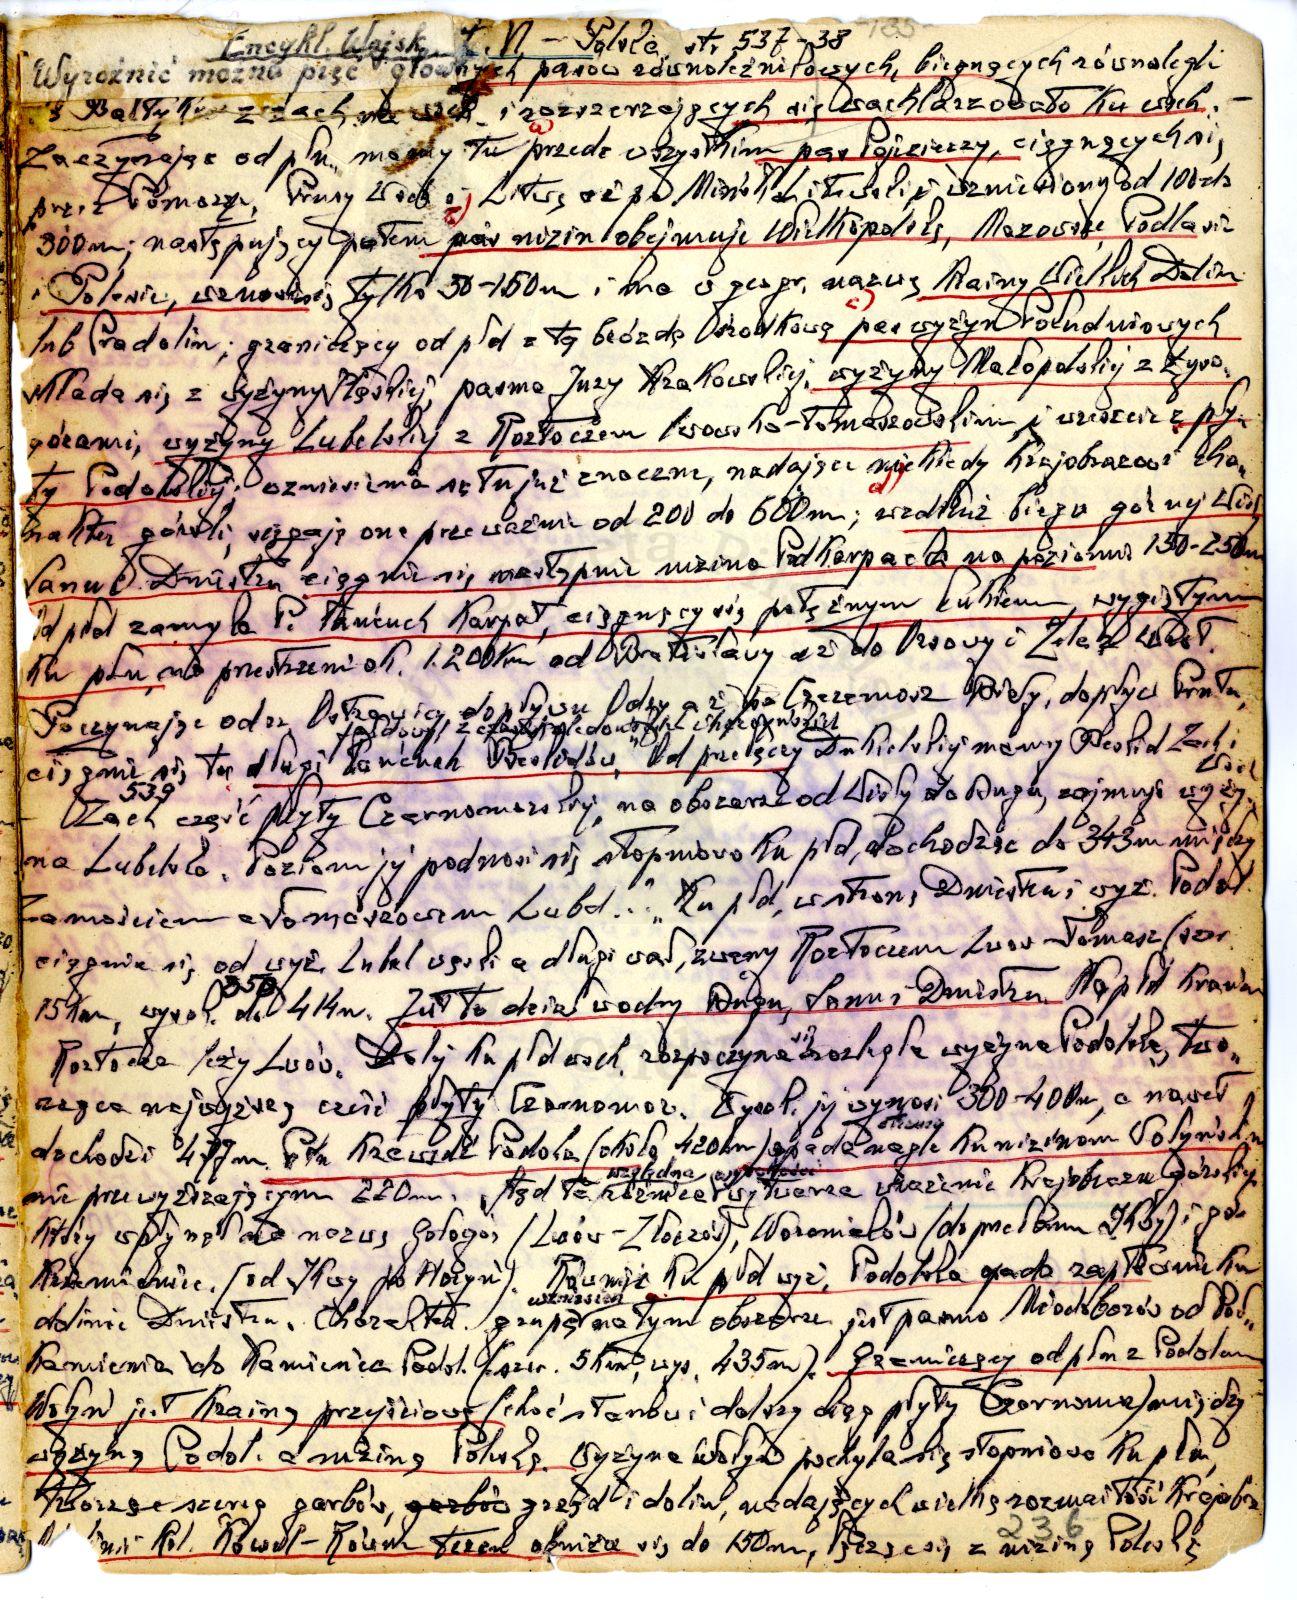 Encykl. Wojsk. t. VI – Polska, str 537-38
Wyróżnić można pięć głównych pasów równoleżnikowych, biegnących równolegle
Bałtyku z zach. na wsch. i rozszerzających się wachlarzowato ku wsch. –
Zaczynając od płn., mamy tu przede wszystkim pas Pojezierzy, ciągnących się
przez Pomorze, Prusy Wsch. i Litwę aż po Mińsk Litewski i wzniesiony od 100 do
300m; następujący potem pas nizin obejmuje Wielkopolskę, Mazowsze, Podlasie
i Polesie, wznosi się tylko 50-150m i ma w geogr. nazwę Krainy Wielkich Dolin
lub Pradolin; graniczący od płd z tą bruzdą środkową pas wyżyn Południowych
składa się z wyżyny Śląskiej, pasma Jury Krakowskiej, wyżyny Małopolskiej z Łyso-
górami, wyżyny Lubelskiej z Roztoczem lwowsko-tomaszowskim i wreszcie z pły-
ty Podolskiej; wzniesienia są tu już znaczne, nadające niekiedy krajobrazowi cha-
rakter górski, sięgają one przeważnie od 200 do 600m; wzdłuż biegu górnej Wisły
Sanu i Dniestru ciągnie się następnie nizina Podkarpacka na poziomie 150-250m
Od płd zamyka P. łańcuch Karpat, ciągnący się potężnym łukiem, wygiętym
ku płn, na przestrzeni ok. 1.200km od Bratisławy aż do Orsowy i Żelaz. Wrót.
Poczynając od rz. Ostrawicy, dopływu Odry aż po Czeremosz Biały, dopływ Prutu,
ciągnie się tu długi łańcuch Beskidów. Od przełęczy Dukielskiej mamy Beskid Zach i
Wsch
539
Zach część płyty Czarnomorskiej, na obszarze od Wisły do Bugu, zajmuje wyży-
na Lubelska. Poziom jej podnosi się stopniowo ku płd, dochodząc do 343m między
Zamościem a Tomaszowem Lubel..." Ku płd, w stronę Dniestru i wyż. Podol.
ciągnie się od wyż. Lubel wąski a długi wał, zwany Roztoczem Lwow-Tomasz (szer.
350
15km, wysok. do 414m. Jest to dział wodny Bugu, Sanu i Dniestru. Na płd krańcu
Roztocza leży Lwów. Dalej ku płd wsch. rozpoczyna się rozległa wyżyna Podolska, two-
rząca najwyższą część płyty Czarnomor. Wysok. jej wynosi 300-400m, a nawet
dochodzi 477m. Płn krawędź Podola (około 420m) opada nagle ku nizinom Wołyńskim
nie przewyższającym 220m. Stąd ta różnica wytwarza wrażenie krajobrazu górskiego
względna wysokości
który wpłynął na nazwę Gołogór (Lwów-Złoczów), Woroniaków (do przełomu Ikwy) i gór
Krzemieniec. (od Ikwy po Horyń). Również ku płd wyż. Podolska opada zapłowie ku
dolinie Dniestru. Charakter. wzniesień grupą na tym obszarze jest pasmo Miodoborów od Pod-
kamienia do Kamieńca Podol. (szer. 5km, wys. 435m). Graniczący od płn z Podolem
Wołyń jest krainą przejściową (choć stanowi dalszy ciąg płyty Czarnomor) między
wyżyną Podol. a niziną Poleską. Wyżyna Wołyń pochyla się stopniowo ku płn,
tworząc szereg garbów, grzęd i dolin, nadających wielką rozmaitość krajobr.
kol. Kowel-Równe teren obniża się do 150m, łącząc się z niziną Poleską
236